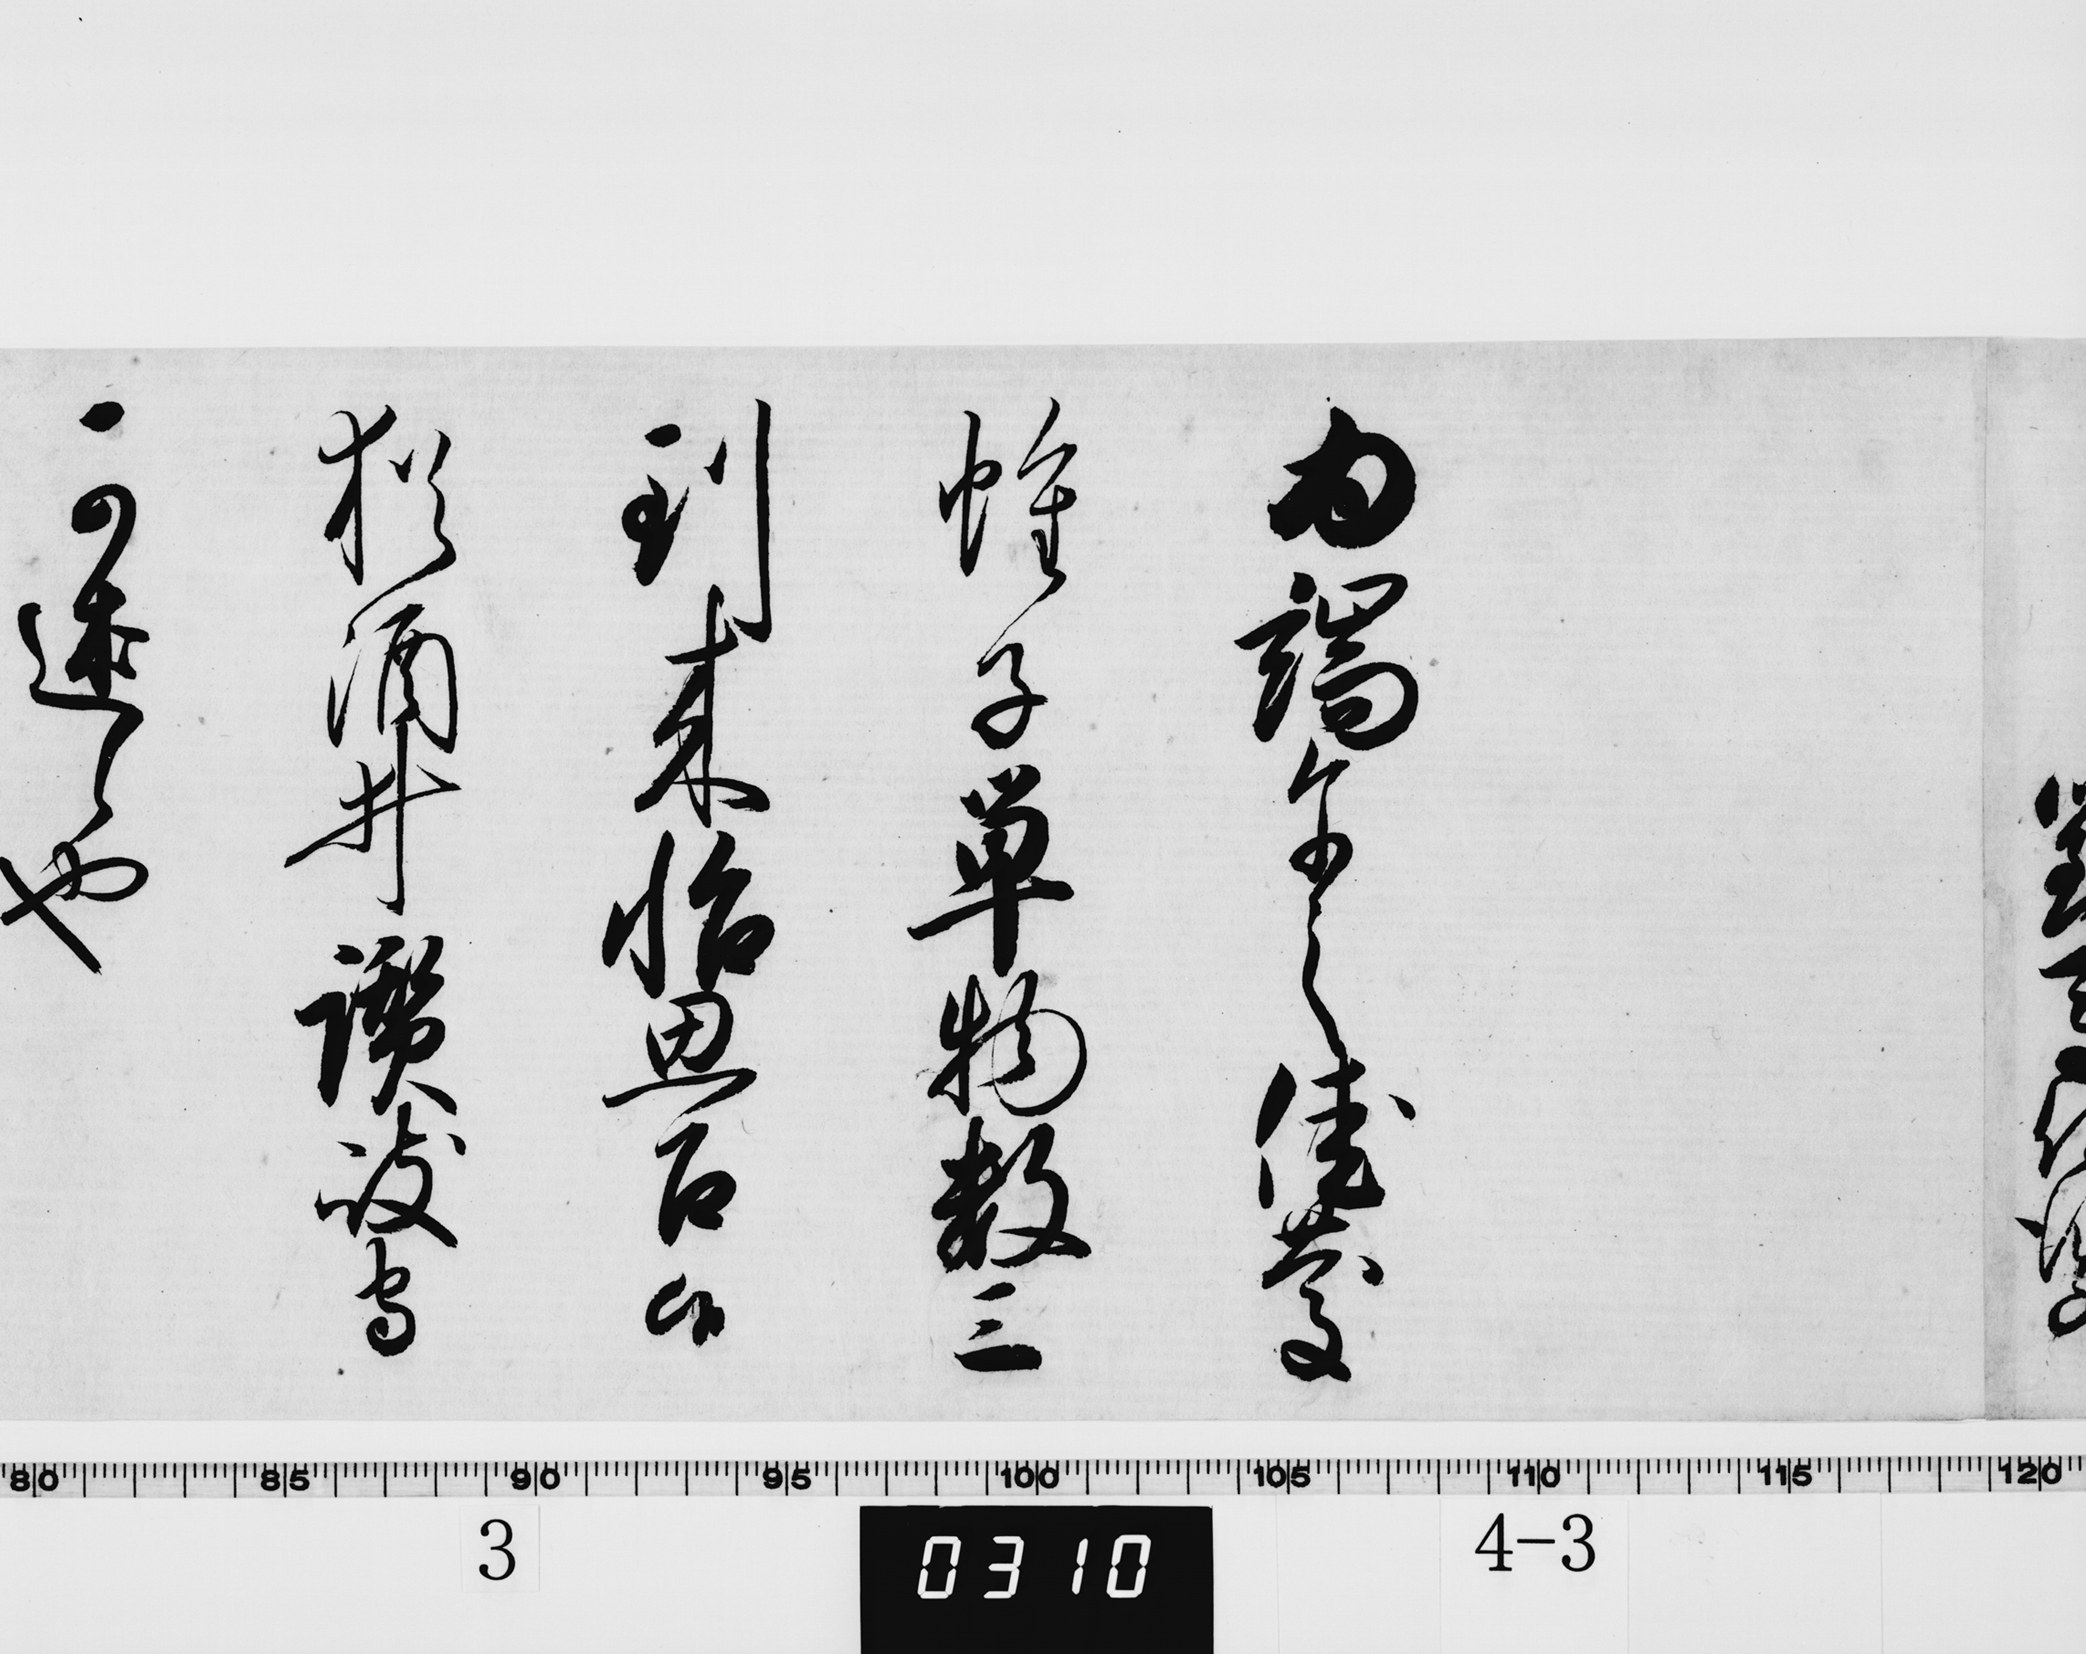 為端午之佳慶
帷子単物数三
到来怡思召候
猶酒井讃岐守
可述之也
80 85 90 95 100 105 110 115 120
3
0310
4-3